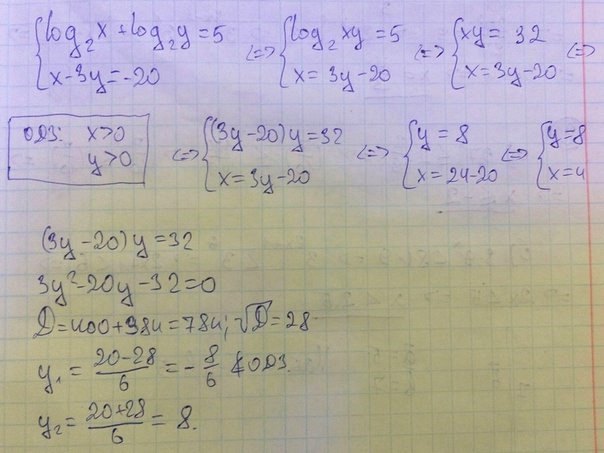 {log₂x + log₂y = 5 <=> {log₂xy = 5 <=> {xy = 32 <=>
{x-3y=-20 {x = 3y-20 {x=3y-20
ОДЗ: x>0
y>0
<=> {(3y-20)y=32 <=> {y = 8 <=> {y=8
{x=3y-20 {x = 24-20 {x=4
(3y-20)y=32
3y²-20y-32=0
D=400+384=784; √D=28
y₁ = (20-28)/6 = -8/6 ∉ ОДЗ.
y₂ = (20+28)/6 = 8.